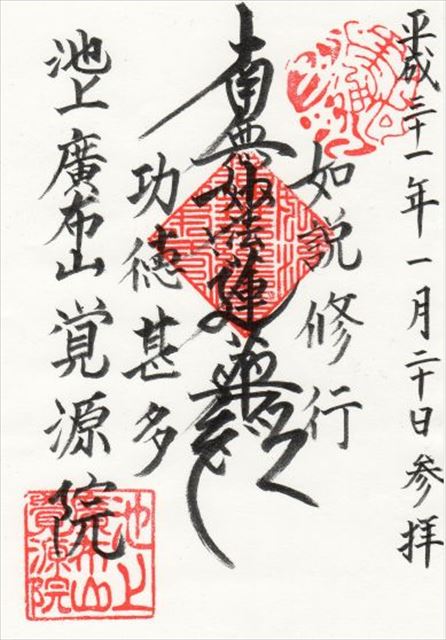 平成三十一年一月二十日参拝
如説修行
南無妙法蓮華経
功徳甚多
池上廣布山覚源院
池上
廣布山
覚源院